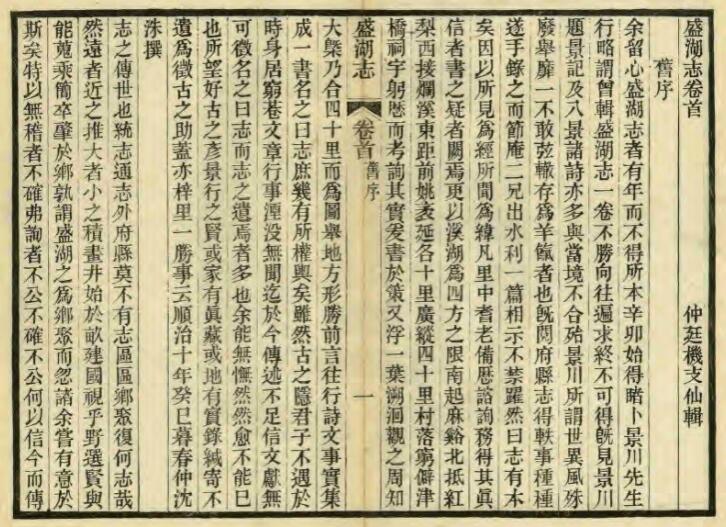 盛湖志卷首
舊序
仲廷機支仙輯
余留心盛湖志者有年而不得所本辛卯始得睹卜景川先生
行略謂曾輯盛湖志一卷不勝向往遍求終不可得旣見景川
題景記及八景諸詩亦多與當境不合殆景川所謂世異風殊
廢舉靡一不敢弦轍存為羊餼者也旣閱府縣志得軼事種種
遂手錄之而節庵二兄出水利一篇相示不禁躍然曰志有本
矣因以所見為經所聞為緯凡里中耆老備歷諮詢務得其眞
信者書之疑者闕焉更以溪湖為四方之限南起麻谿北抵紅
梨西接爛溪東距前姚袤延各十里廣縱四十里村落窮僻津
橋祠宇躬歷而考詢其實爰書於策又浮一葉溯洄觀之周知
盛湖志
卷首
舊序
一
大槩乃合四十里而為圖舉地方形勝前言往行詩文事實集
成一書名之曰志庶幾有所權輿矣雖然古之隱君子不遇於
時身居窮巷文章行事湮没無聞迄於今傳述不足信文獻無
可徵名之曰志而志之遺焉者多也余能無憮然然愈不能已
也所望好古之彥景行之賢或家有眞藏或地有實錄緘寄不
遺為徵古之助蓋亦梓里一勝事云順治十年癸巳暮春仲沈
洙撰
志之傳世也統志通志外府縣莫不有志區區鄉聚復何志哉
然遠者近之推大者小之積畫井始於畝建國視乎野選賢與
能蒐乘簡卒肇於鄉孰謂盛湖之為鄉聚而忽諸余嘗有意於
斯矣特以無稽者不確弗詢者不公不確不公何以信今而傳